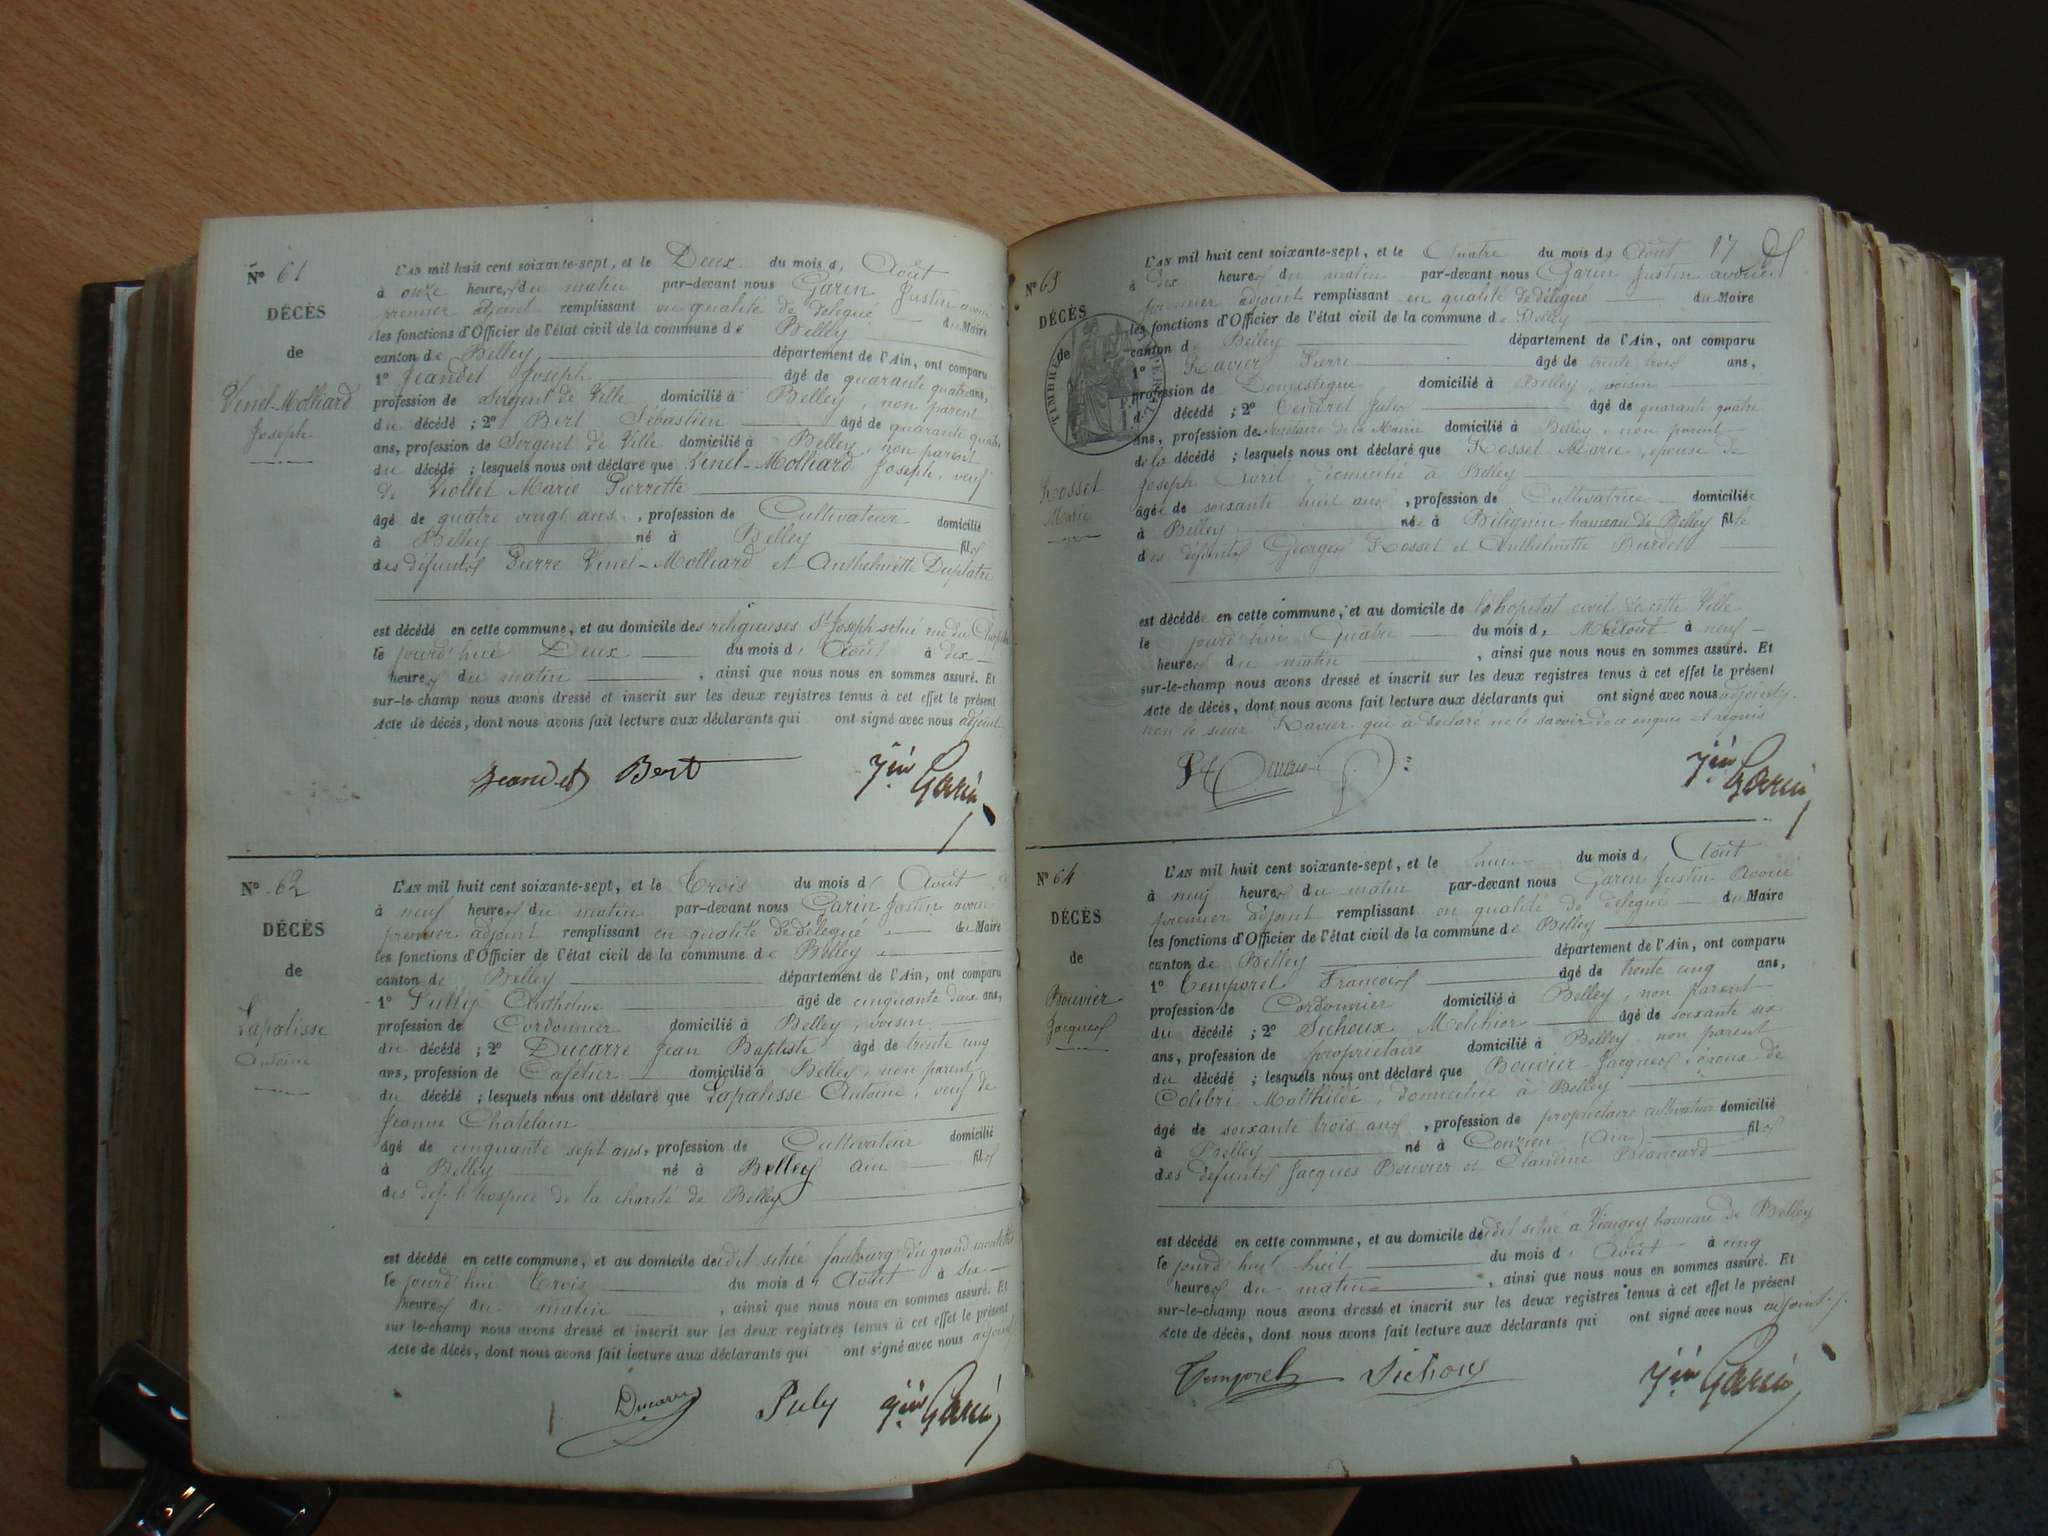 N° 61
DÉCÈS
de
Vinel-Molliard
Joseph
L'AN mil huit cent soixante-sept, et le Deux du mois d' Août
à onze heures du matin par-devant nous Garin Justin avoué
premier adjoint remplissant en qualité de délégué du Maire
les fonctions d'Officier de l'état civil de la commune de Belley
canton de Belley département de l'Ain, ont comparu
1° Jeandet Joseph âgé de quarante quatre ans,
profession de Sergent de Ville domicilié à Belley, non parent
du décédé ; 2° Bert Sébastien âgé de quarante quatre
ans, profession de Sergent de Ville domicilié à Belley, non parent
du décédé ; lesquels nous ont déclaré que Vinel-Molliard Joseph, veuf
de Viollet Marie Pierrette
âgé de quatre vingt ans, profession de Cultivateur domicilié
à Belley né à Belley fils
des défunts Pierre Vinel-Molliard et Anthelmette Duplatre
est décédé en cette commune, et au domicile des religieuses St Joseph situé rue du Chapitre
le jourd'hui Deux du mois d' Août à dix
heures du matin, ainsi que nous nous en sommes assuré. Et
sur-le-champ nous avons dressé et inscrit sur les deux registres tenus à cet effet le présent
Acte de décès, dont nous avons fait lecture aux déclarants qui ont signé avec nous adjoint
Jeandet Bert Jin Garin
N° 62
DÉCÈS
de
Lapalisse
Antoine
L'AN mil huit cent soixante-sept, et le Trois du mois d' Août
à neuf heures du matin par-devant nous Garin Justin avoué
premier adjoint remplissant en qualité de délégué du Maire
les fonctions d'Officier de l'état civil de la commune de Belley
canton de Belley département de l'Ain, ont comparu
1° Pully Anthelme âgé de cinquante deux ans,
profession de Cordonnier domicilié à Belley, voisin
du décédé ; 2° Ducarre Jean Baptiste âgé de trente cinq
ans, profession de Cafetier domicilié à Belley, non parent
du décédé ; lesquels nous ont déclaré que Lapalisse Antoine, veuf de
Jeanne Chatelain
âgé de cinquante sept ans, profession de Cultivateur domicilié
à Belley né à Belley ain fils
des def l'hospice de la charité de Belley
est décédé en cette commune, et au domicile dudit situé faubourg du grand
le jourd'hui Trois du mois d' Août à six
heures du matin, ainsi que nous nous en sommes assuré. Et
sur-le-champ nous avons dressé et inscrit sur les deux registres tenus à cet effet le présent
Acte de décès, dont nous avons fait lecture aux déclarants qui ont signé avec nous adjoint
Ducarre Puly Jin Garin
17
N° 63
DÉCÈS
de
TIMBRE
Rosset
Marie
L'AN mil huit cent soixante-sept, et le Quatre du mois de Août
à dix heures du matin par-devant nous Garin Justin avoué
premier adjoint remplissant en qualité de délégué du Maire
les fonctions d'Officier de l'état civil de la commune de Belley
canton d Belley département de l'Ain, ont comparu
1° Ravier Pierre âgé de trente trois ans,
profession de Domestique domicilié à Belley, voisin
d décédé ; 2° Tendret Jules âgé de quarante quatre
ans, profession de Secrétaire de la Mairie domicilié à Belley, non parent
de la décédé ; lesquels nous ont déclaré que Rosset Marie, épouse de
Joseph Avril, domicilié à Belley
âgée de soixante huit ans, profession de Cultivatrice domiciliée
à Belley née à Billignin hameau de Belley fille
des défunts Georges Rosset et Anthelmette Burdet
est décédée en cette commune, et au domicile de l'hopital civil de cette Ville
le jourd'hui Quatre du mois d' Août à neuf
heures du matin, ainsi que nous nous en sommes assuré. Et
sur-le-champ nous avons dressé et inscrit sur les deux registres tenus à cet effet le présent
Acte de décès, dont nous avons fait lecture aux déclarants qui ont signé avec nous adjoint
non le sieur Ravier qui a déclaré ne le savoir de ce enquis et requis
Jin Garin
N° 64
DÉCÈS
de
Bouvier
Jacques
L'AN mil huit cent soixante-sept, et le huit du mois d' Août
à neuf heures du matin par-devant nous Garin Justin Avoué
premier adjoint remplissant en qualité de délégué du Maire
les fonctions d'Officier de l'état civil de la commune de Belley
canton de Belley département de l'Ain, ont comparu
1° Temporel François âgé de trente cinq ans,
profession de Cordonnier domicilié à Belley, non parent
du décédé ; 2° Sichoux Melchior âgé de soixante six
ans, profession de propriétaire domicilié à Belley non parent
du décédé ; lesquels nous ont déclaré que Bouvier Jacques, époux de
Colibri Matthilde, domicilié à Belley
âgé de soixante trois ans, profession de propriétaire cultivateur domicilié
à Belley né à Conzieu (Ain) fils
des défunts Jacques Bouvier et Claudine Blancard
est décédé en cette commune, et au domicile dudit situé à hameau de Belley
le jourd'hui huit du mois d' Août à cinq
heures du matin, ainsi que nous nous en sommes assuré. Et
sur-le-champ nous avons dressé et inscrit sur les deux registres tenus à cet effet le présent
Acte de décès, dont nous avons fait lecture aux déclarants qui ont signé avec nous adjoint
Temporel Sichoux Jin Garin